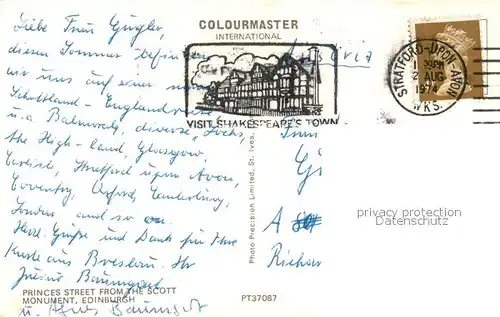 COLOURMASTER
INTERNATIONAL
Liebe Frau Gugler,
diesen Sommer befinden
wir uns auf einer
Schottland - England
u.a. Balmoral, diverse Lochs,
the High-land, Glasgow,
Carlisle, Stratford upon Avon,
Coventry, Oxford, Canterbury,
London und so
Herzl. Grüße und Dank für Ihre
Karte aus Breslau. Ihr
Baumgart
u. Agnes Baumgart
Austria
A
VISIT SHAKESPEARE'S TOWN
STRATFORD-UPON-AVON
2 AUG
1974
WKS.
Photo Precision Limited, St. Ives,
privacy protection
Copyright
PRINCES STREET FROM THE SCOTT
MONUMENT, EDINBURGH
PT37087